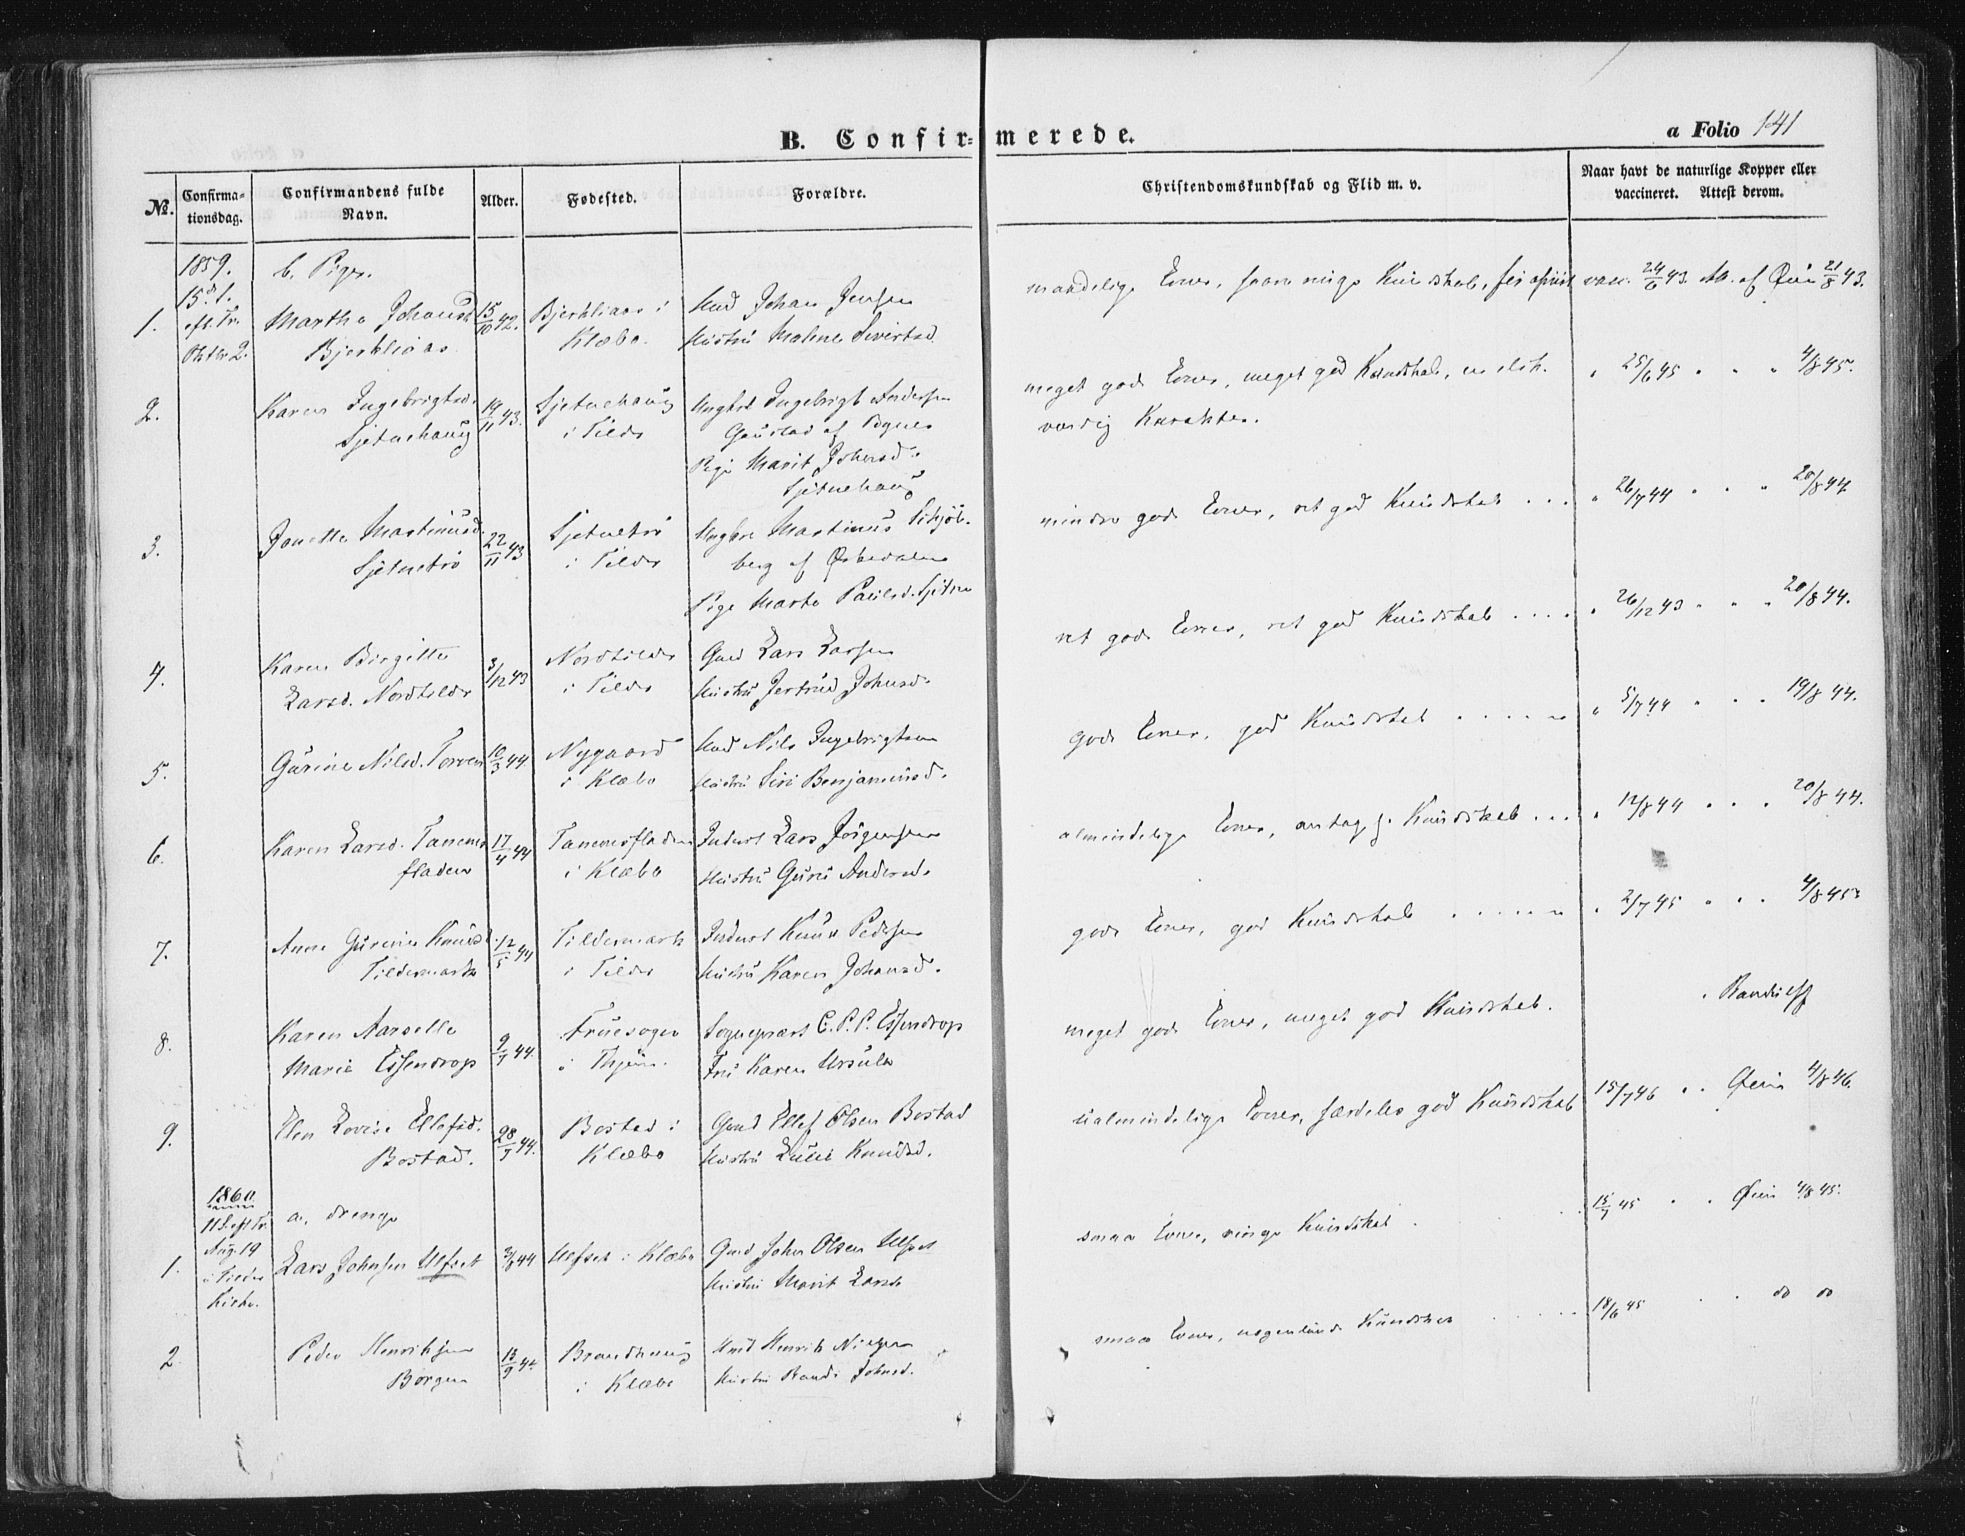 B. Confir=merede.
a Folio 141
No.
Confirma-
tionsdag.
Confirmandens fulde
Navn.
Alder.
Fødested.
Forældre.
Christendomskundskab og Flid m. v.
Naar havt de naturlige Kopper eller
vaccineret. Attest derom.
1859.
b. Piger.
15. S.
eft. Tr.
Oktbr 2.
1.
Martha Johansd.
Bjerkliaas
15/10 42.
Bjerkliaas i
Klæbo.
Huusmd Johan Jensen
Hustru Malene Sivertsd.
maadelige Evner, ringe Kundskab,
vacc. 24/6 43. Att. af Øien 21/8 43.
2.
Karen Ingebrigtsd.
Sjetnehaug
19/11 43.
Sjetnehaug
i Tiller
Ungkrl Ingebrigt Andersen
af
Pige Marit Johnsd.
Sjetnehaug
meget gode Evner, meget god Kundskab, en elsk-
værdig Karakter.
" 25/6 45 " " " 4/8 45.
3.
Jonetta Martinusd.
Sjetnetrø
22/11 43
Sjetnetrø
i Tiller
Ungkrl Martinus
berg af
Pige Marta Paulsd. Sjetne
mindre gode Evner, ret god Kundskab . . .
" 26/7 44 " " " 20/8 44
4.
Karen Birgitte
Larsd. Nordtiller
3/12 43
Nordtiller
i Tiller
Gmd Lars Larsen
Hustru Jertrud Johnsd.
ret gode Evner, ret god Kundskab . . . .
" 26/12 43 " " " 20/8 44.
5.
Gurine Nilsd. Torven
10/3 44
Nygaard
i Klæbo
Hmd Nils Ingebrigtsen
Hustru Siri Benjaminsd.
gode Evner, god Kundskab . . . . .
" 5/7 44 " " " 19/8 44.
6.
Karen Larsd. Tanems
fladen
17/4 44
Tanemsfladen
i Klæbo
Inderst Lars Jørgensen
Hustru Guru Andersd.
almindelige Evner, antag. g. Kundskab . . .
" 12/8 44 " " " 20/8 44.
7.
Anne Gurine Knudsd.
Tillermark
12/5 44
Tillermark
i Tiller
Inderst Knud Pedersen
Hustru Karen Johansd.
gode Evner, god Kundskab . . . . .
" 2/7 45 " " " 4/8 45.
8.
Karen Aarselle
Marie Essendrop
9/7 44.
Fruesogn
i Thjem.
Sognepræst C. P. P. Essendrop
Fru Karen Ursula
meget gode Evner, meget god Kundskab.
" Randulff
9.
Elen Lovise Ellefsd.
Bostad.
28/7 44.
Bostad i
Klæbo
Gmd Ellef Olsen Bostad
Hustru Knudsd.
ualmindelige Evner, særdeles god Kundskab
15/7 46 " " Øien 4/8 46.
1860.
11 S. eft. Tr.
Aug. 19
i Tiller
Kirke.
a. drenge
1.
Lars Johnsen Ulfset
3/8 44
Ulfset i Klæbo
Gmd John Olsen Ulfset
Hustru Marit Larsd.
smaa Evner, ringe Kundskab
15/7 45 " " Øien 4/8 45.
2
Peder Henriksen
Borgen
13/9 44
Brandhaug
i Klæbo
Hmd Henrik Nielsen
Hustru Randi Johnsd.
smaa Evner, nogenlunde Kundskab
18/6 45 " " do do